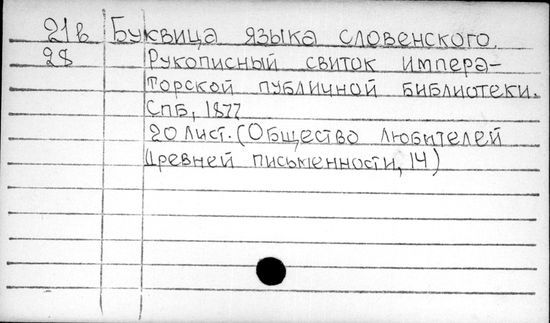 21в Буквица языка словенского.
28 Рукописный свиток импера-
торской публичной библиотеки.
Спб, 1877
20 лист. (Общество любителей
древней письменности, 14)